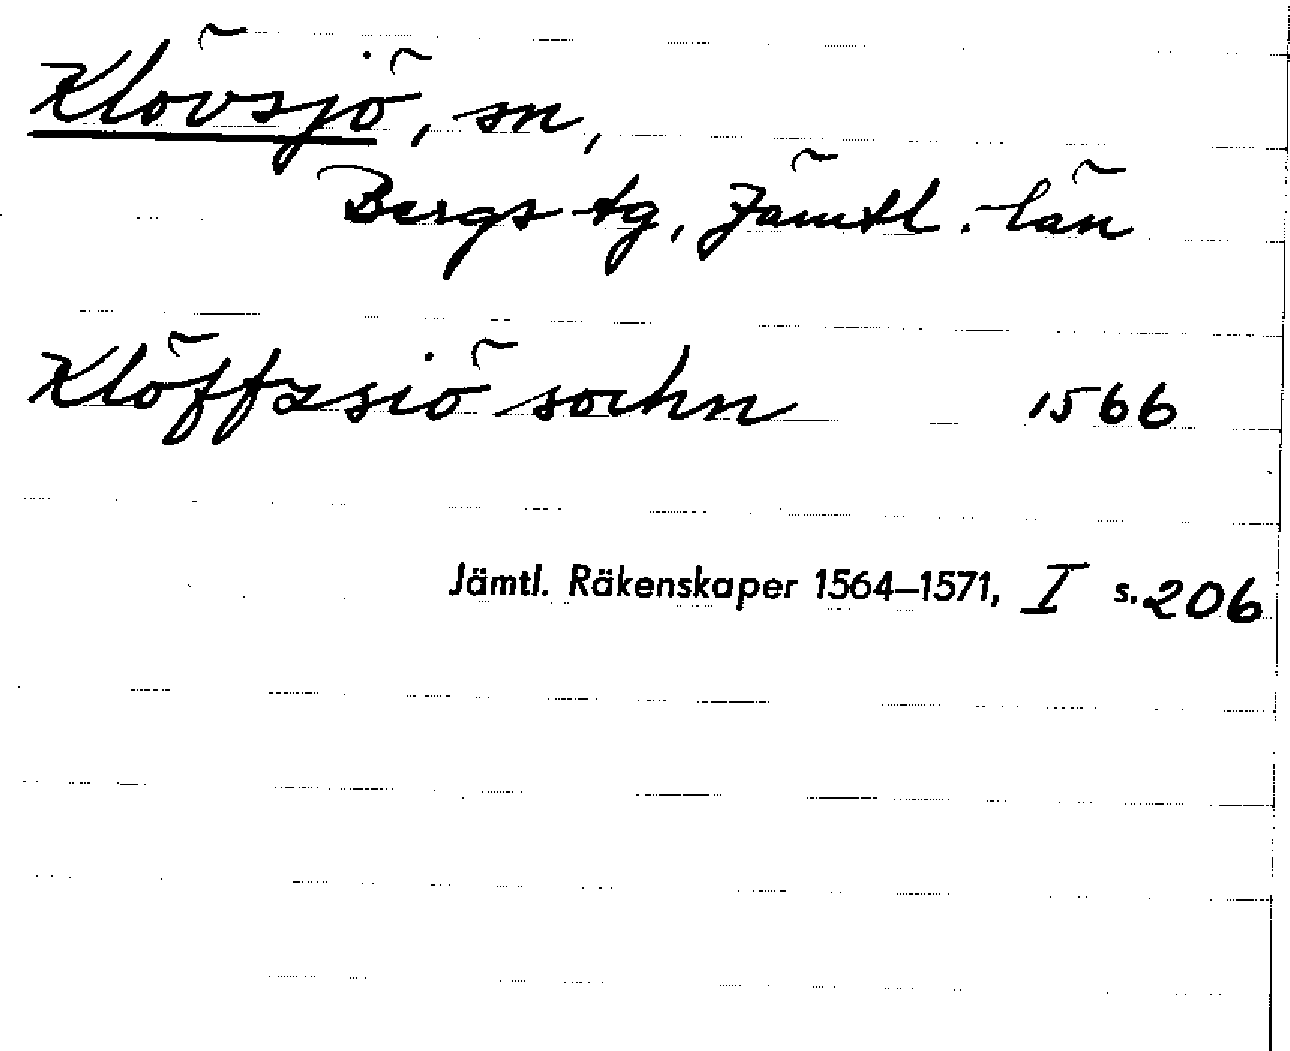 Klövsjö, sn,
Bergs tg, Jämtl. län
Klöffzsiö sochn 1566
Jämtl. Räkenskaper 1564–1571, I s. 206